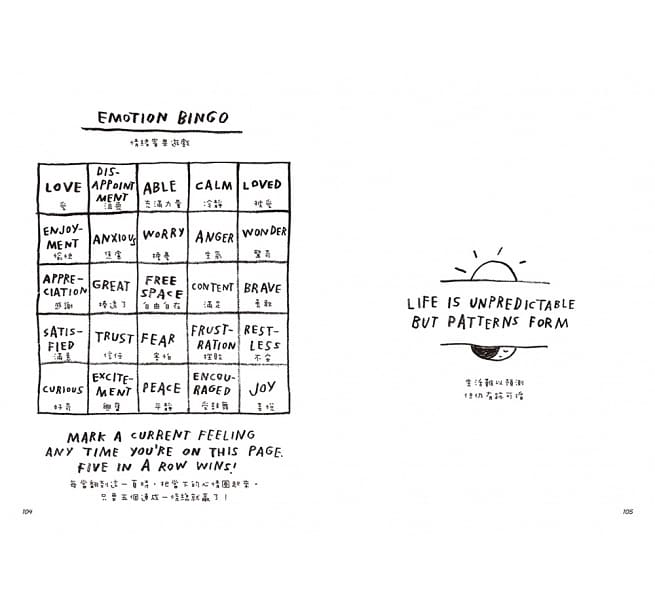 EMOTION BINGO
情緒賓果遊戲
LOVE
愛
DIS-
APPOINT
MENT
ABLE
充滿力量
CALM
冷靜
LOVED
被愛
ENJOY-
MENT
愉快
ANXIOUS
焦慮
WORRY
擔憂
ANGER
生氣
WONDER
驚奇
APPRE-
CIATION
感謝
GREAT
棒透了
FREE
SPACE
自由自在
CONTENT
滿足
BRAVE
勇敢
SATIS-
FIED
滿意
TRUST
信任
FEAR
害怕
FRUST-
RATION
挫敗
REST-
LESS
不安
CURIOUS
好奇
EXCITE-
MENT
興奮
PEACE
平靜
ENCOU-
RAGED
受鼓舞
JOY
喜悅
MARK A CURRENT FEELING
ANY TIME YOU'RE ON THIS PAGE.
FIVE IN A ROW WINS!
每當翻到這一頁時，把當下的心情圈起來。
只要五個連成一條線就贏了！
104
LIFE IS UNPREDICTABLE
BUT PATTERNS FORM
生活難以預測
但仍有跡可循
105